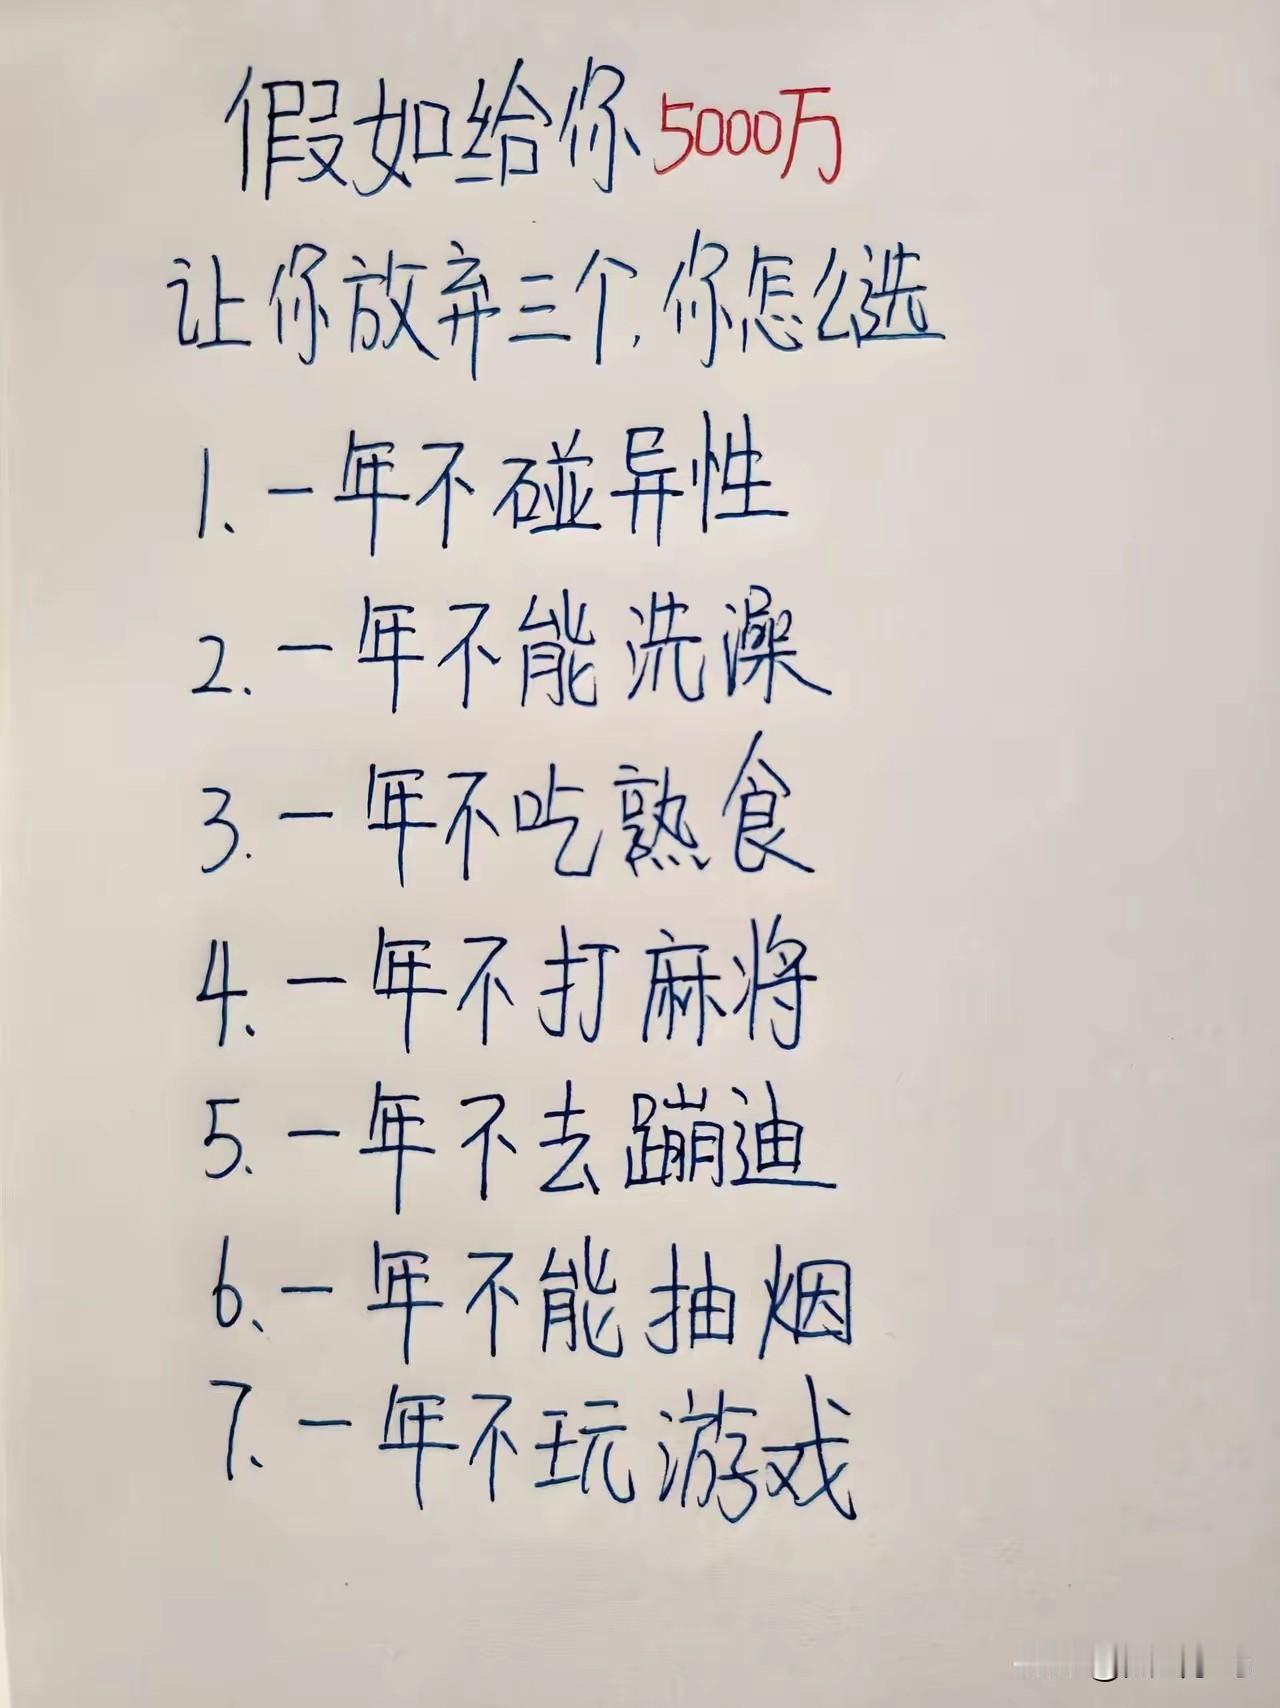 假如给你5000万
让你放弃三个,你怎么选
1、一年不碰异性
2、一年不能洗澡
3.一年不吃熟食
4、一年不打麻将
5、一年不去蹦迪
6、一年不能抽烟
7、一年不玩游戏